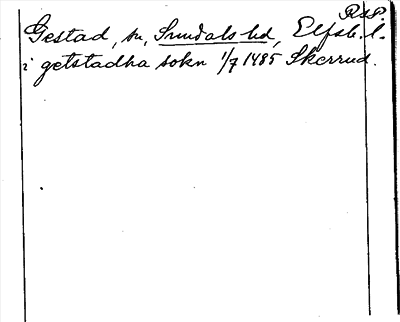 RsP.
Gestad, sn, Sundals hd, Elfsb. l.
i getstadha sokn 1/7 1485 Skerrud.